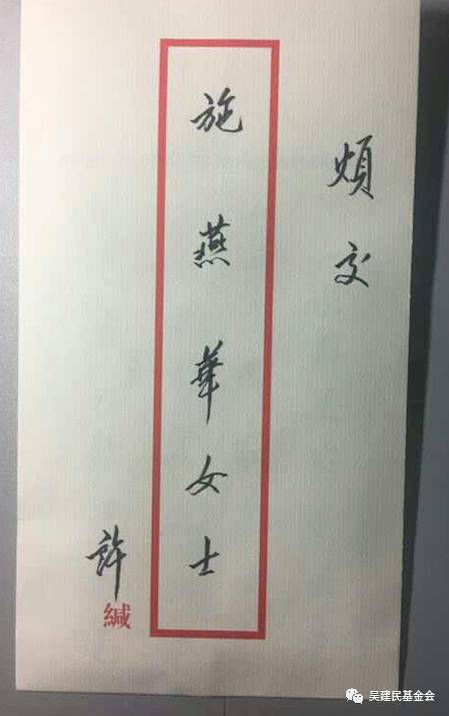 煩交
施燕華女士
許緘
吴建民基金会